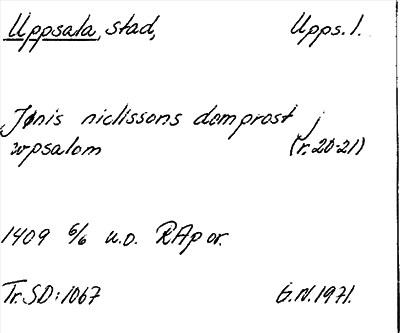 Uppsala, stad, Upps. l.
Jønis niclissons domprost j
wpsalom (r. 20-21)
1409 6/6 u.o. RAp or.
Tr. SD: 1067 G.W. 1971.